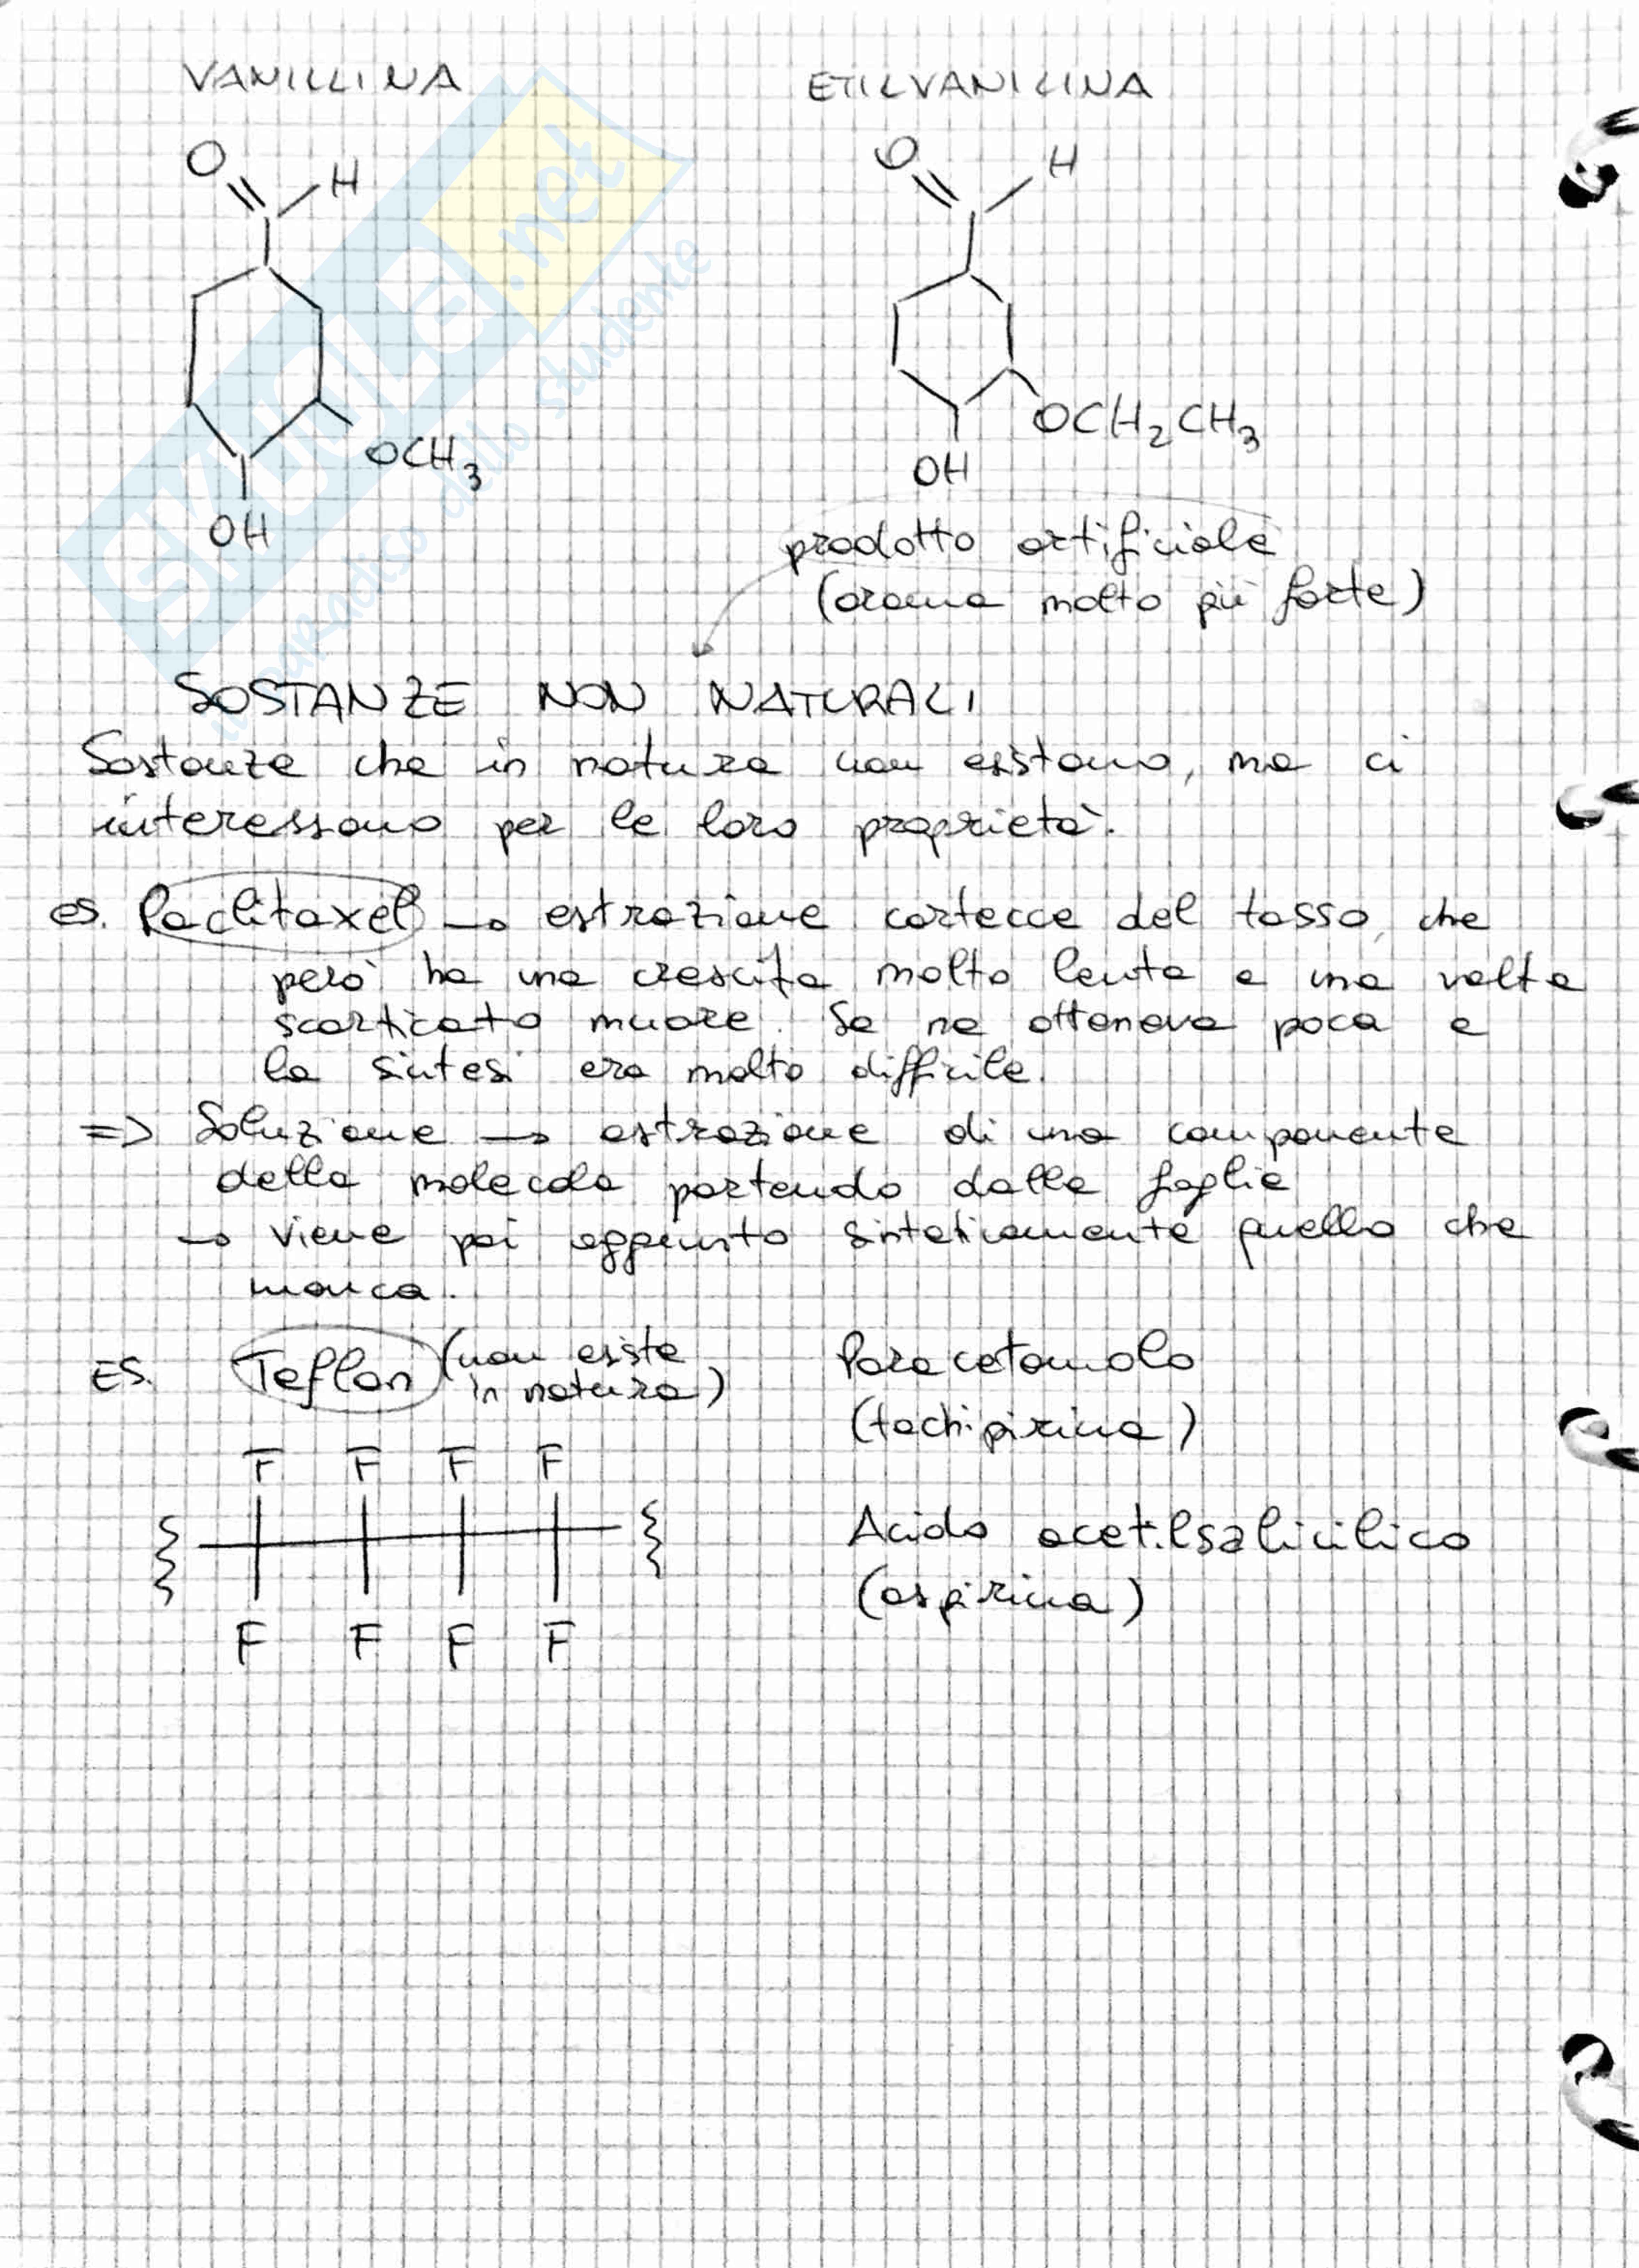 VANILLINA
ETILVANILINA
O
H
O
H
OCH3
OH
OCH2CH3
OH
prodotto artificiale
(aroma molto più forte)
SOSTANZE NON NATURALI
Sostanze che in natura non esistono, ma ci
interessano per le loro proprietà.
es. Paclitaxel → estrazione cortecce del tasso, che
però ha una crescita molto lenta e una volta
scorticato muore. Se ne otteneva poca e
la sintesi era molto difficile.
=> Soluzione → estrazione di una componente
della molecola partendo dalle foglie
→ viene poi aggiunto sinteticamente quello che
manca.
ES. Teflon (non esiste
in natura)
Paracetamolo
(tachipirina)
F F F F
Acido acetilsalicilico
(aspirina)
F F F F
SKUOLA.net
il paradiso dello studente